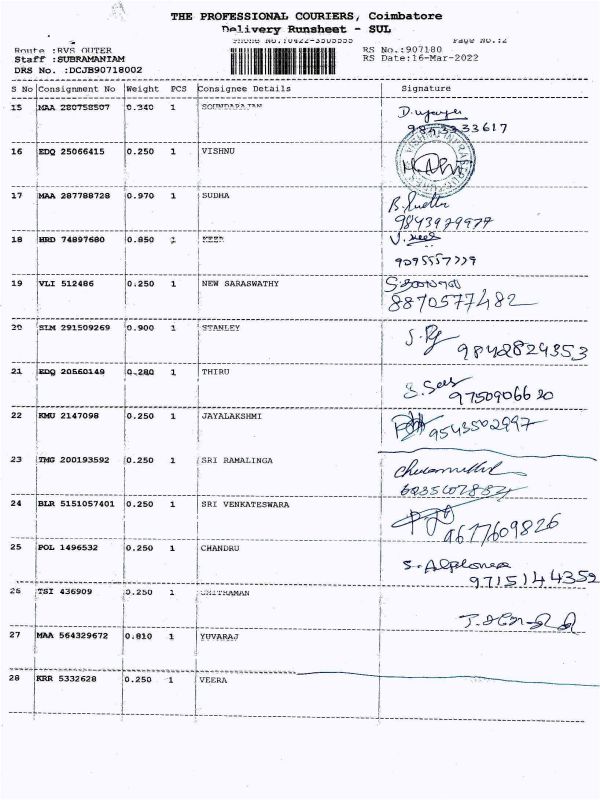 THE PROFESSIONAL COURIERS, Coimbatore
Delivery Runsheet - SUL
Phone No.:0422-3505555 Page No.:2
Route :RVS OUTER RS No.:907180
Staff :SUBRAMANIAM RS Date:16-Mar-2022
DRS No. :DCJB90718002
S No Consignment No Weight PCS Consignee Details Signature
15 MAA 280758507 0.340 1 SOUNDARAJAN
16 EDQ 25066415 0.250 1 VISHNU
17 MAA 287788728 0.970 1 SUDHA B. Sudha
9843979977
18 HRD 74897680 0.850 1
9095557779
19 VLI 512486 0.250 1 NEW SARASWATHY
8870577482
20 SLM 291509269 0.900 1 STANLEY
9842824353
21 EDQ 20560149 0.280 1 THIRU
9750906620
22 KMU 2147098 0.250 1 JAYALAKSHMI
9543502997
23 TMG 200193592 0.250 1 SRI RAMALINGA
24 BLR 5151057401 0.250 1 SRI VENKATESWARA
9677609826
25 POL 1496532 0.250 1 CHANDRU S. Alphonsa
9715144352
26 TSI 436909 0.250 1
27 MAA 564329672 0.810 1 YUVARAJ
28 KRR 5332628 0.250 1 VEERA